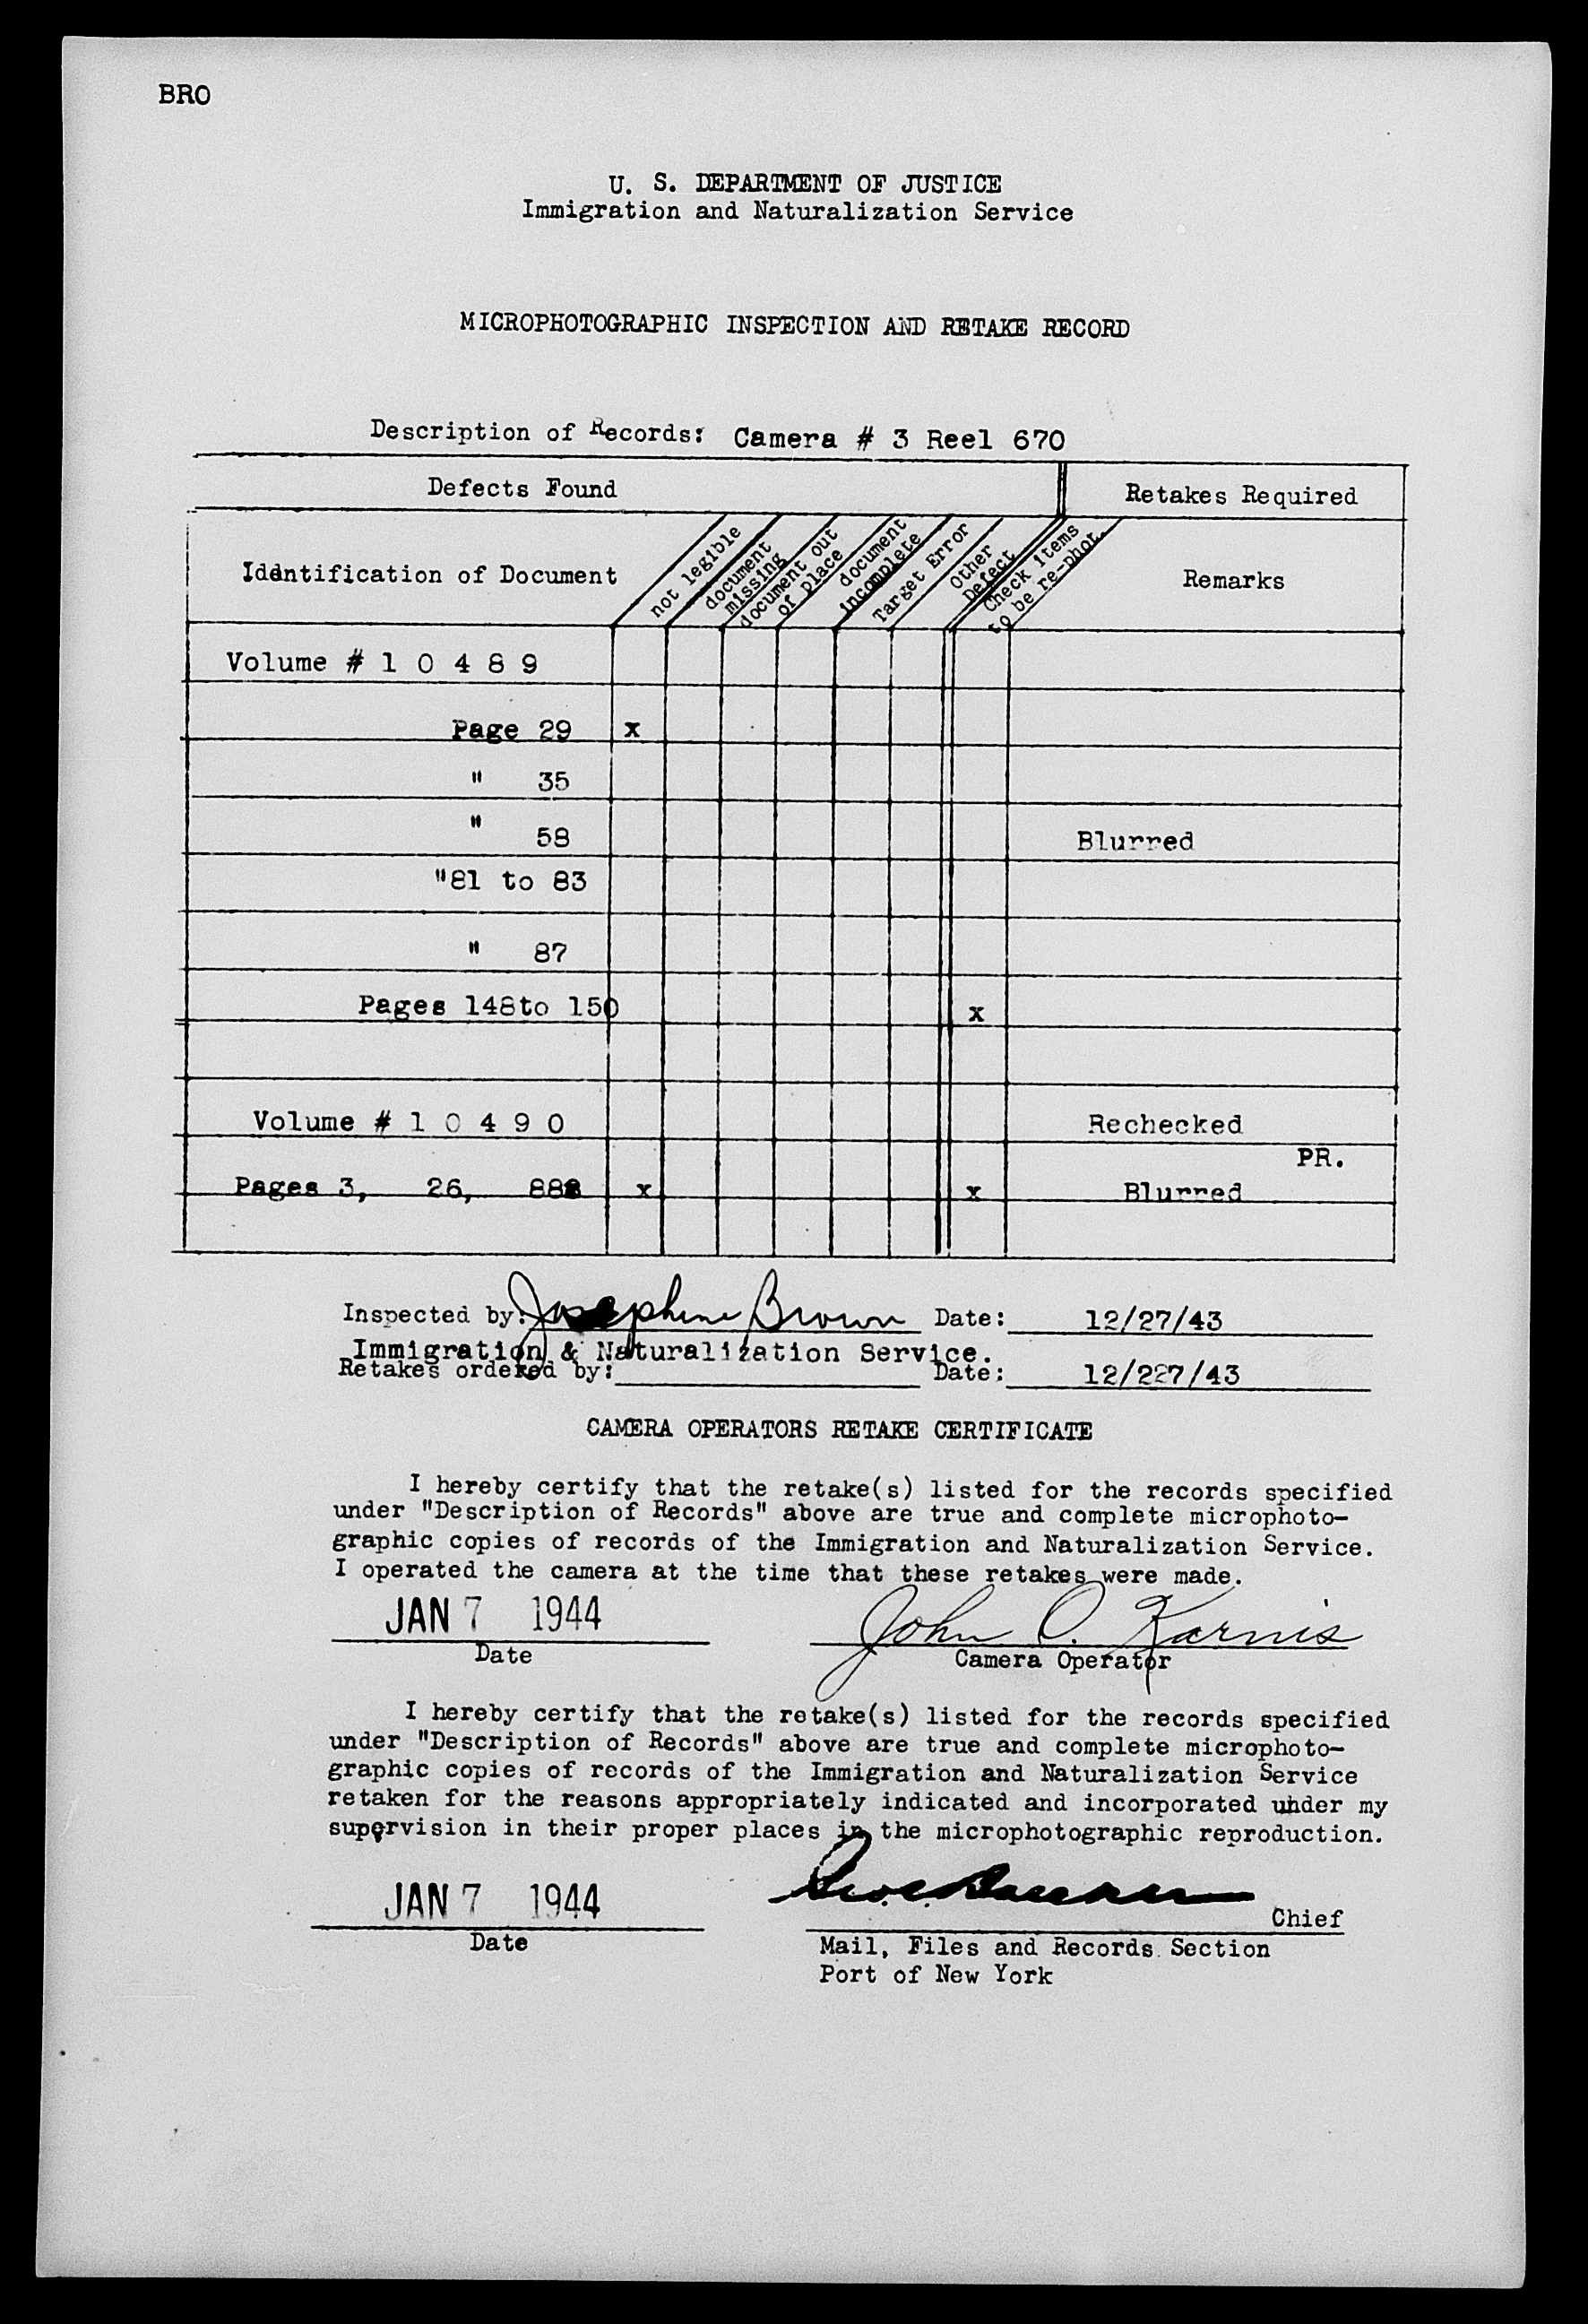 BRO
U. S. DEPARTMENT OF JUSTICE
Immigration and Naturalization Service
MICROPHOTOGRAPHIC INSPECTION AND RETAKE RECORD
Description of Records: Camera # 3 Reel 670
Defects Found Retakes Required
Idantification of Document not legible document missing document out of place document incomplete Target Error Other Defect Check items to be re-phot. Remarks
Volume # 1 0 4 8 9
Page 29 x
" 35
" 58 Blurred
"81 to 83
" 87
Pages 148to 150 x
Volume # 1 0 4 9 0 Rechecked
PR.
Pages 3, 26, 88 x x Blurred
Inspected by: Josephine Brown Date: 12/27/43
Immigration & Naturalization Service.
Retakes ordered by: Date: 12/227/43
CAMERA OPERATORS RETAKE CERTIFICATE
I hereby certify that the retake(s) listed for the records specified
under "Description of Records" above are true and complete microphoto-
graphic copies of records of the Immigration and Naturalization Service.
I operated the camera at the time that these retakes were made.
JAN 7 1944 John O. Karnis
Date Camera Operator
I hereby certify that the retake(s) listed for the records specified
under "Description of Records" above are true and complete microphoto-
graphic copies of records of the Immigration and Naturalization Service
retaken for the reasons appropriately indicated and incorporated under my
supervision in their proper places in the microphotographic reproduction.
JAN 7 1944
Chief
Date Mail, Files and Records Section
Port of New York